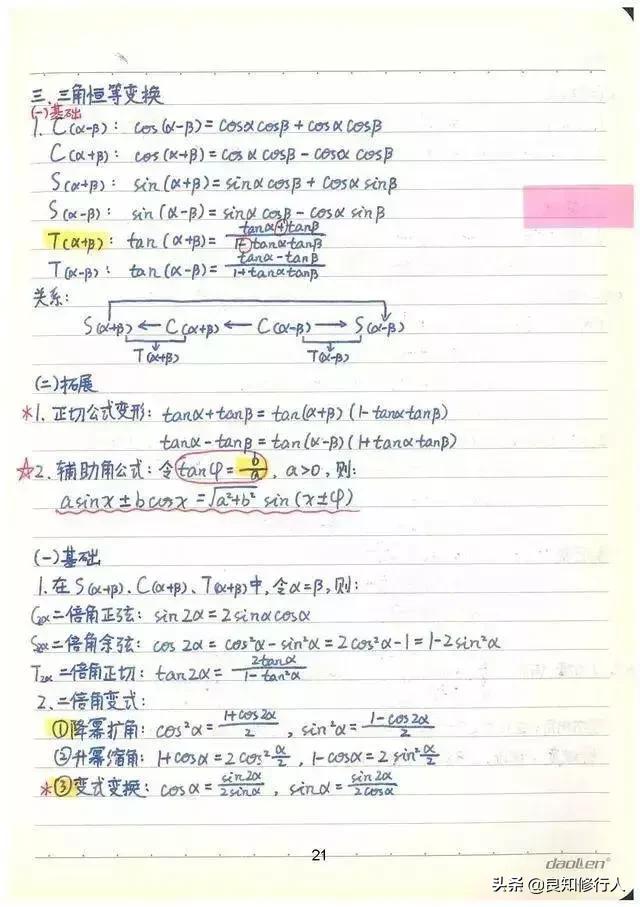 三、三角恒等变换
(一)基础
1. C(α-β): cos(α-β)=cosαcosβ+cosαcosβ
C(α+β): cos(α+β)=cosαcosβ-cosαcosβ
S(α+β): sin(α+β)=sinαcosβ+cosαsinβ
S(α-β): sin(α-β)=sinαcosβ-cosαsinβ
T(α+β): tan(α+β)=\frac{tanα+tanβ}{1-tanαtanβ}
T(α-β): tan(α-β)=\frac{tanα-tanβ}{1+tanαtanβ}
关系:
S(α+β) ← C(α+β) ← C(α-β) → S(α-β)
T(α+β) T(α-β)
(二)拓展
*1. 正切公式变形: tanα+tanβ=tan(α+β)(1-tanαtanβ)
tanα-tanβ=tan(α-β)(1+tanαtanβ)
☆2. 辅助角公式:令tanφ=\frac{b}{a}, a>0, 则:
asinx±bcosx=√a²+b² sin(x±φ)
(一)基础
1. 在S(α+β)、C(α+β)、T(α+β)中,令α=β,则:
C2α二倍角正弦: sin2α=2sinαcosα
S2α二倍角余弦: cos2α=cos²α-sin²α=2cos²α-1=1-2sin²α
T2α二倍角正切: tan2α=\frac{2tanα}{1-tan²α}
2. 二倍角变式:
①降幂扩角: cos²α=\frac{1+cos2α}{2}, sin²α=\frac{1-cos2α}{2}
②升幂缩角: 1+cosα=2cos²\frac{α}{2}, 1-cosα=2sin²\frac{α}{2}
*③变式变换: cosα=\frac{sin2α}{2sinα}, sinα=\frac{sin2α}{2cosα}
21
daolen®
头条 @良知修行人